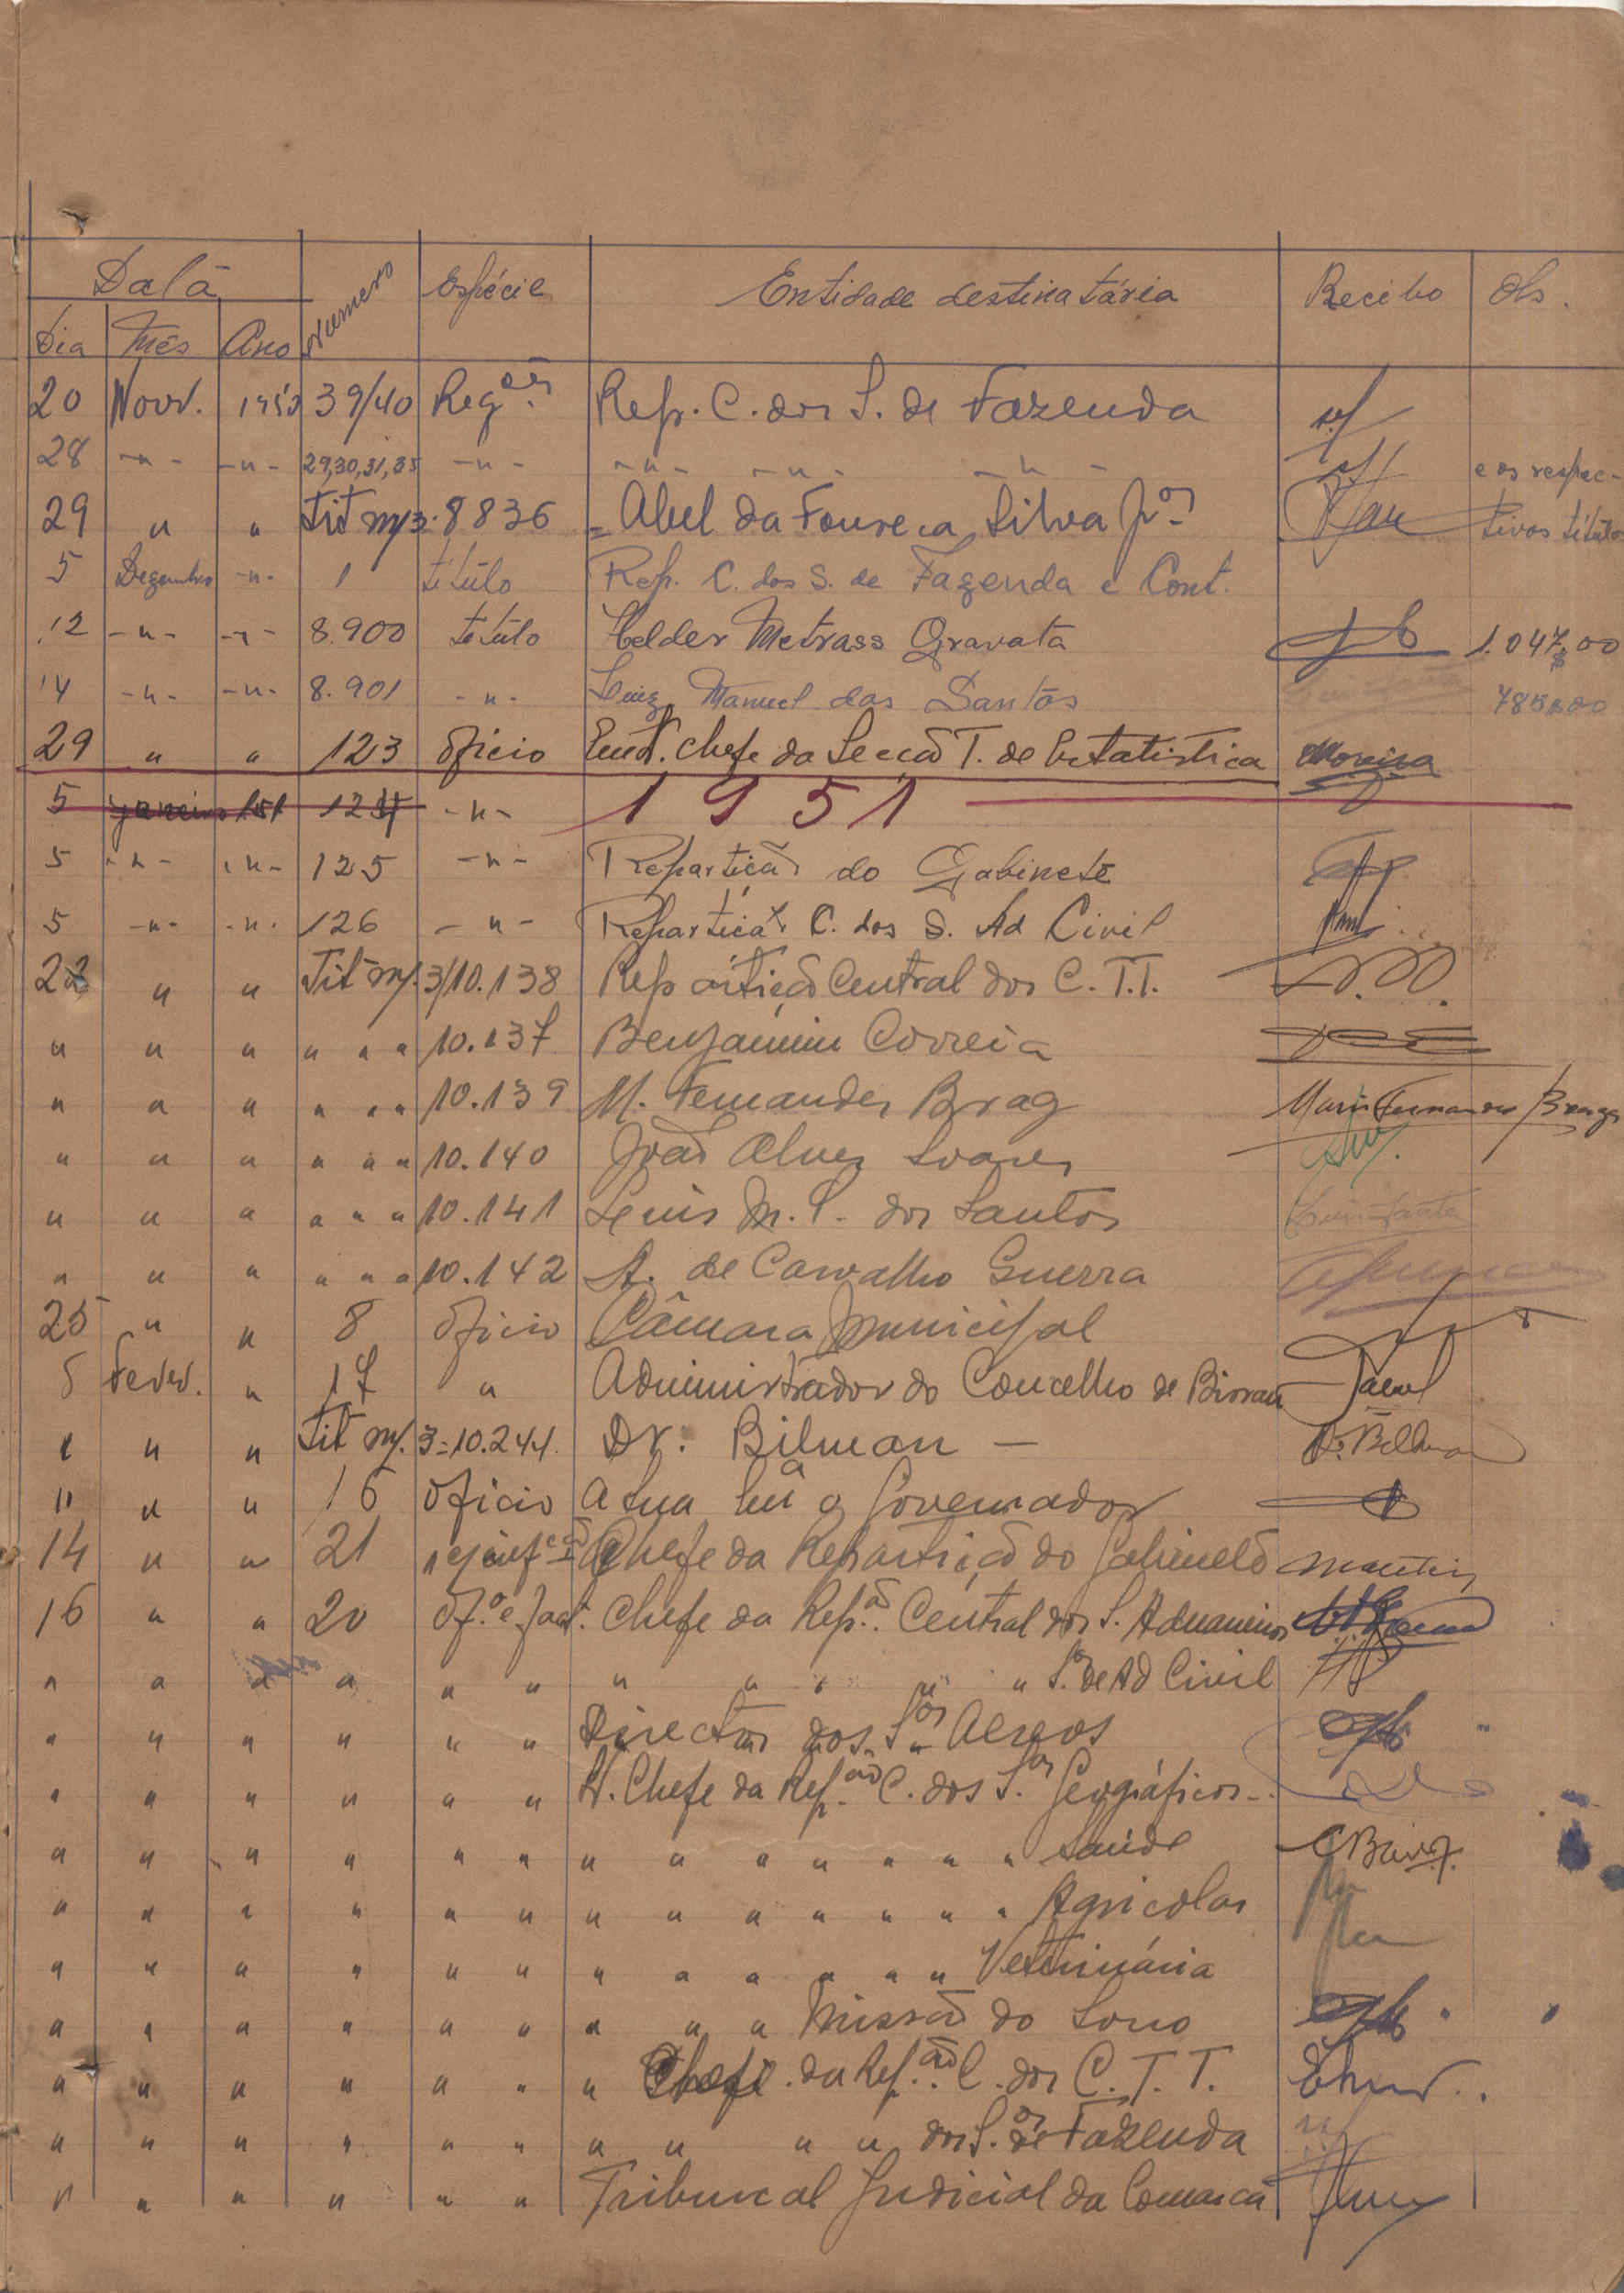 Data Numero Espécie Entidade destinatária Recibo Obs.
Dia Mês Ano
20 Novr. 1950 39/40 Reqões. Rep. C. dos S. de Fazenda
28 -"- -"- 29,30,31,35 -"- -"- -"- -"- e os respec-
29 " " Tit m/3: 8836 = Abel da Fonseca Silva Jor tivos titulos
5 Dezembro -"- 1 titúlo Rep. C. dos S. de Fazenda e Cont.
12 -"- -"- 8.900 titúlo Helder Metrass Gravata 1.047$00
14 -"- -"- 8.901 -"- Luiz Manuel dos Santos 785$00
29 " " 123 Ofício Chefe da Secção T. de Estatistica Moreira
5 Janeiro 951 124 -"- 1951
5 -"- -"- 125 -"- Repartição do Gabinete
5 -"- -"- 126 -"- Repartição C. dos S. Ad Civil
22 " " Tit m/. 3/10.138 Repartição Central dos C. T. T.
" " " " " " 10.137 Benjamim Correia
" " " " " " 10.139 M. Fernandes Brag Mario Fernandes Braga
" " " " " " 10.140 João Alves Soares
" " " " " " 10.141 Luis M. S. dos Santos Luis Santos
" " " " " " 10.142 A. de Carvalho Guerra
25 " " 8 Ofício Câmara Municipal
5 Fever. " 17 " Administrador do Concelho de Bissau
" " " Tit m/. 3=10.244. Dr. Bilman — Dr. Billman
11 " " 16 Ofício A Sua Exa o Governador
14 " " 21 Chefe da Repartição do Gabinete Martins
16 " " 20 Of.o e fact. Chefe da Rep.ão Central dos S. Aduaneiros
" " " " " " " " " " " S.os de Ad Civil
" " " " " " Director dos S.os Aereos "
" " " " " " H. Chefe da Rep.ão C. dos S.os Geográficos -
" " " " " " " " " " " " " Saúde
" " " " " " " " " " " " " Agricolas
" " " " " " " " " " " " Veterinária
" " " " " " " " " Missão do Sono
" " " " " " " Chefe da Rep.ão C. dos C. T. T.
" " " " " " " " " " dos S.os de Fazenda
" " " " " " Tribunal Judicial da Comarca